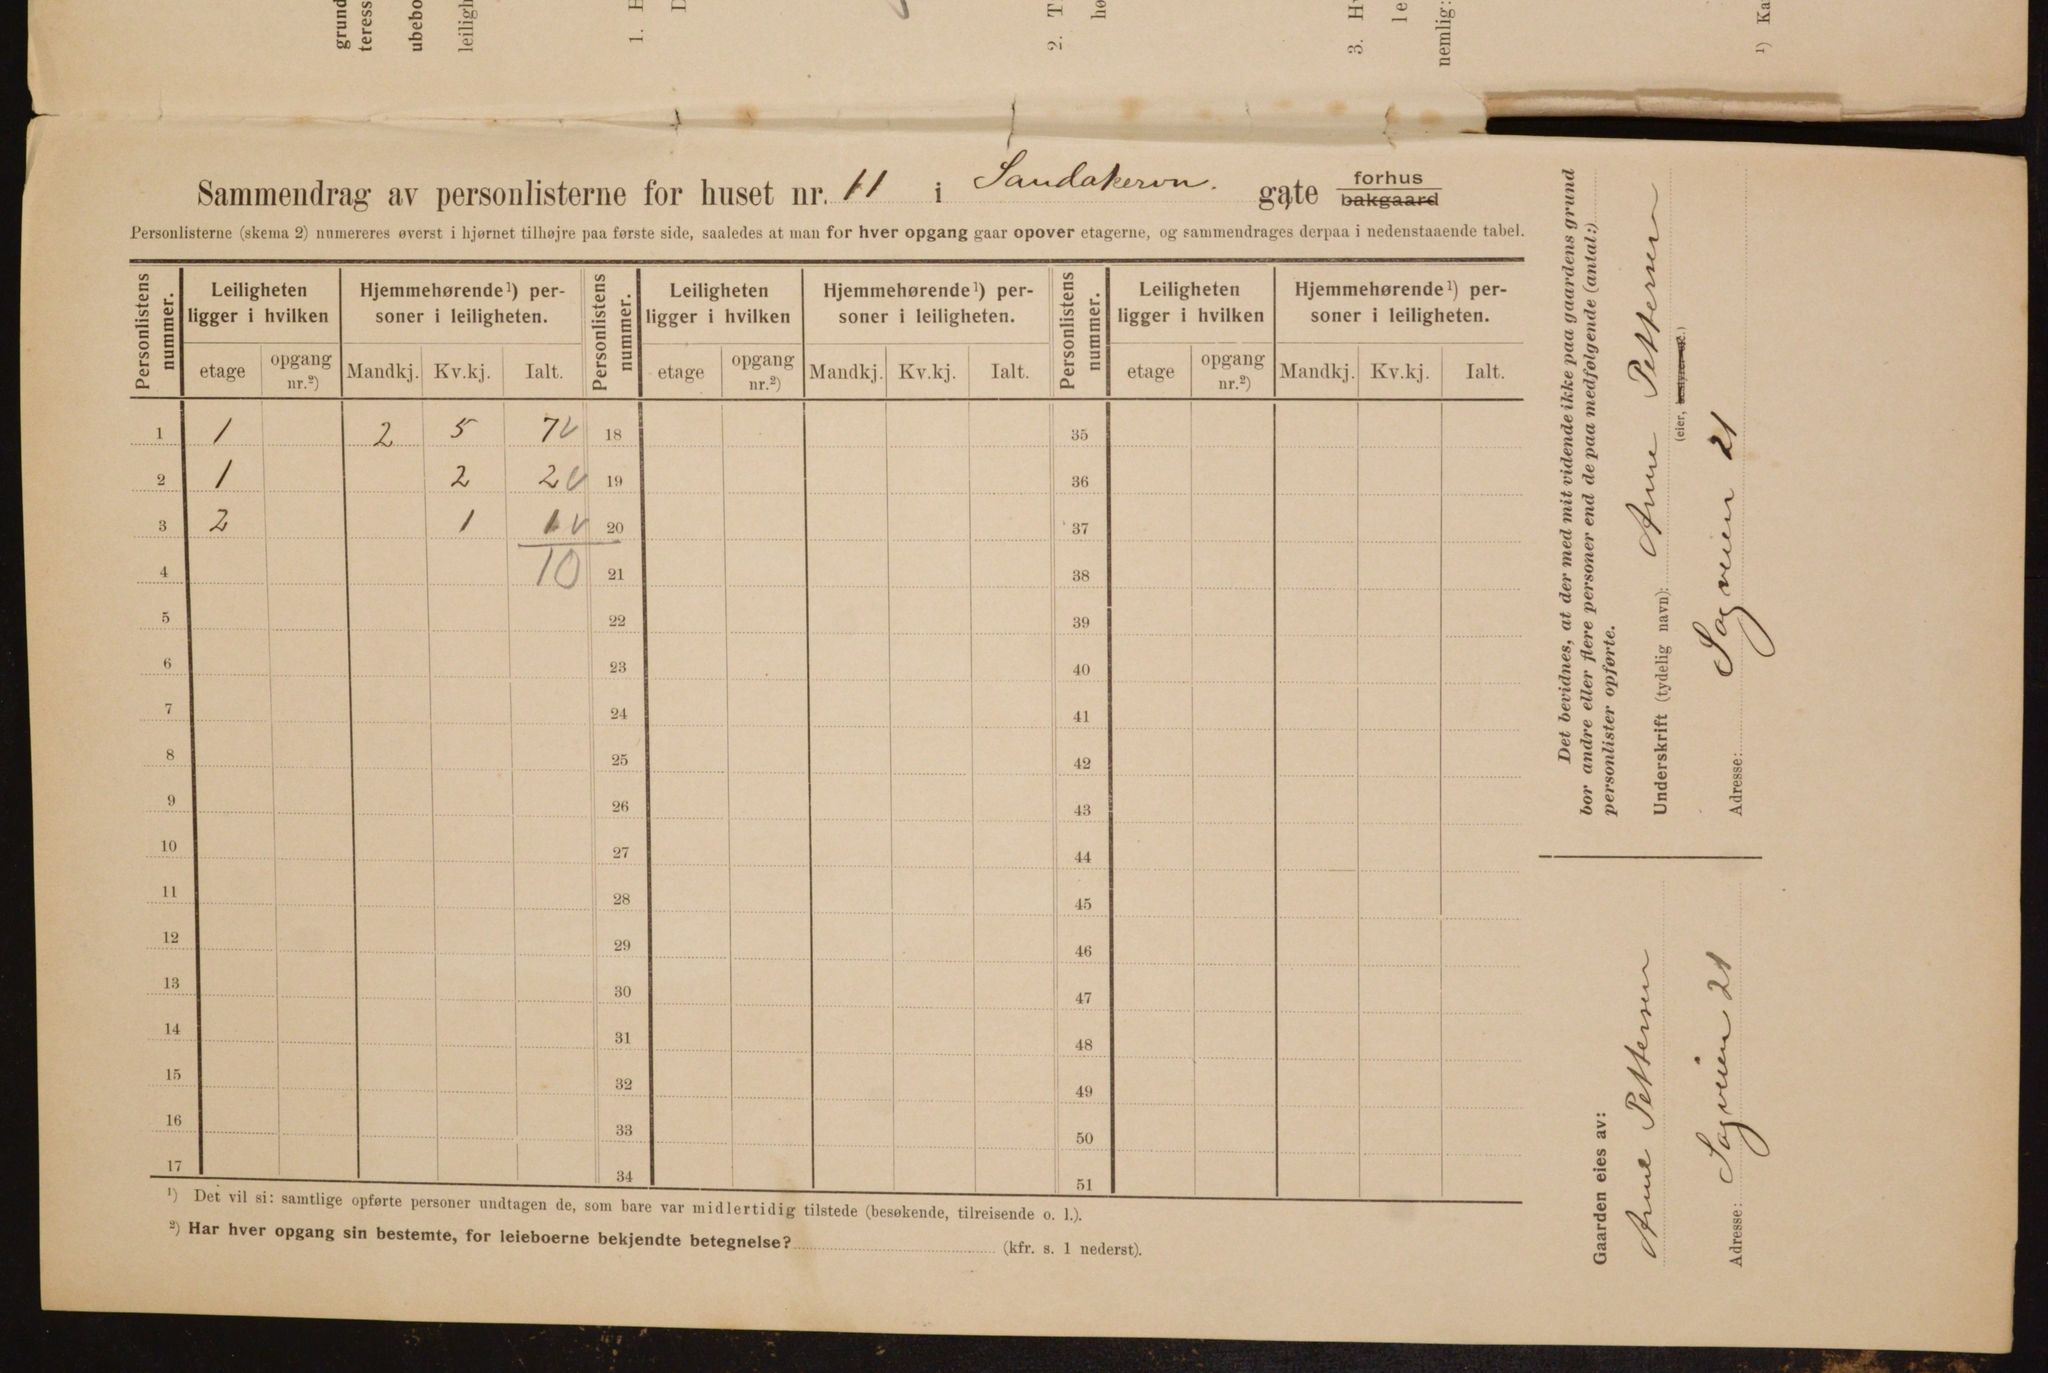 grund
teress
ubebo
leiligh
1. H
D
2. T
hø
3. Hv
le
nemlig:
¹) Ka
Sammendrag av personlisterne for huset nr. 11 i Sandakervn. gate forhus
bakgaard
Personlisterne (skema 2) numereres øverst i hjørnet tilhøjre paa første side, saaledes at man for hver opgang gaar opover etagerne, og sammendrages derpaa i nedenstaaende tabel.
Personlistens nummer. Leiligheten ligger i hvilken Hjemmehørende¹) personer i leiligheten. Personlistens nummer. Leiligheten ligger i hvilken Hjemmehørende¹) personer i leiligheten. Personlistens nummer. Leiligheten ligger i hvilken Hjemmehørende¹) personer i leiligheten.
etage opgang nr.²) Mandkj. Kv.kj. Ialt. etage opgang nr.²) Mandkj. Kv.kj. Ialt. etage opgang nr.²) Mandkj. Kv.kj. Ialt.
1 1 2 5 7 18 35
2 1 2 2 19 36
3 2 1 1 20 37
4 10 21 38
5 22 39
6 23 40
7 24 41
8 25 42
9 26 43
10 27 44
11 28 45
12 29 46
13 30 47
14 31 48
15 32 49
16 33 50
17 34 51
¹) Det vil si: samtlige opførte personer undtagen de, som bare var midlertidig tilstede (besøkende, tilreisende o. l.).
²) Har hver opgang sin bestemte, for leieboerne bekjendte betegnelse? (kfr. s. 1 nederst).
Det bevidnes, at der med mit vidende ikke paa gaardens grund
bor andre eller flere personer end de paa medfølgende (antal:)
personlister opførte.
Underskrift (tydelig navn): Anne Pettersen
(eier, bestyrer o.l.)
Adresse: Sagveien 21
Gaarden eies av:
Anne Pettersen
Adresse: Sagveien 21